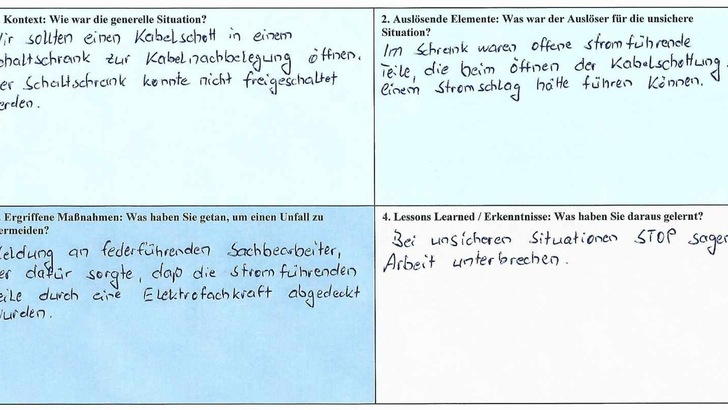 Kontext: Wie war die generelle Situation?
Wir sollten einen Kabelschott in einem
Schaltschrank zur Kabelnachbelegung öffnen.
Der Schaltschrank konnte nicht freigeschaltet
werden.
2. Auslösende Elemente: Was war der Auslöser für die unsichere
Situation?
Im Schrank waren offene stromführende
Teile, die beim öffnen der Kabelschottung
einem Stromschlag hätte führen können.
. Ergriffene Maßnahmen: Was haben Sie getan, um einen Unfall zu
vermeiden?
Meldung an federführenden Sachbearbeiter,
der dafür sorgte, daß die stromführenden
Teile durch eine Elektrofachkraft abgedeckt
wurden.
4. Lessons Learned / Erkenntnisse: Was haben Sie daraus gelernt?
Bei unsicheren Situationen STOP sagen
Arbeit unterbrechen.